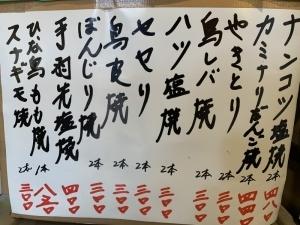 ナンコツ塩焼 2本 四八〇
カミナリだんご焼 2本 四四〇
やきとり 2本 三〇〇
鳥レバ焼 2本 三〇〇
ハツ塩焼 2本 三〇〇
セセリ 2本 三〇〇
鳥皮焼 2本 三〇〇
ぼんじり焼 2本 三〇〇
手羽先塩焼 四〇〇
ひな鳥もも焼 1本
スナギモ焼 2本 三〇〇